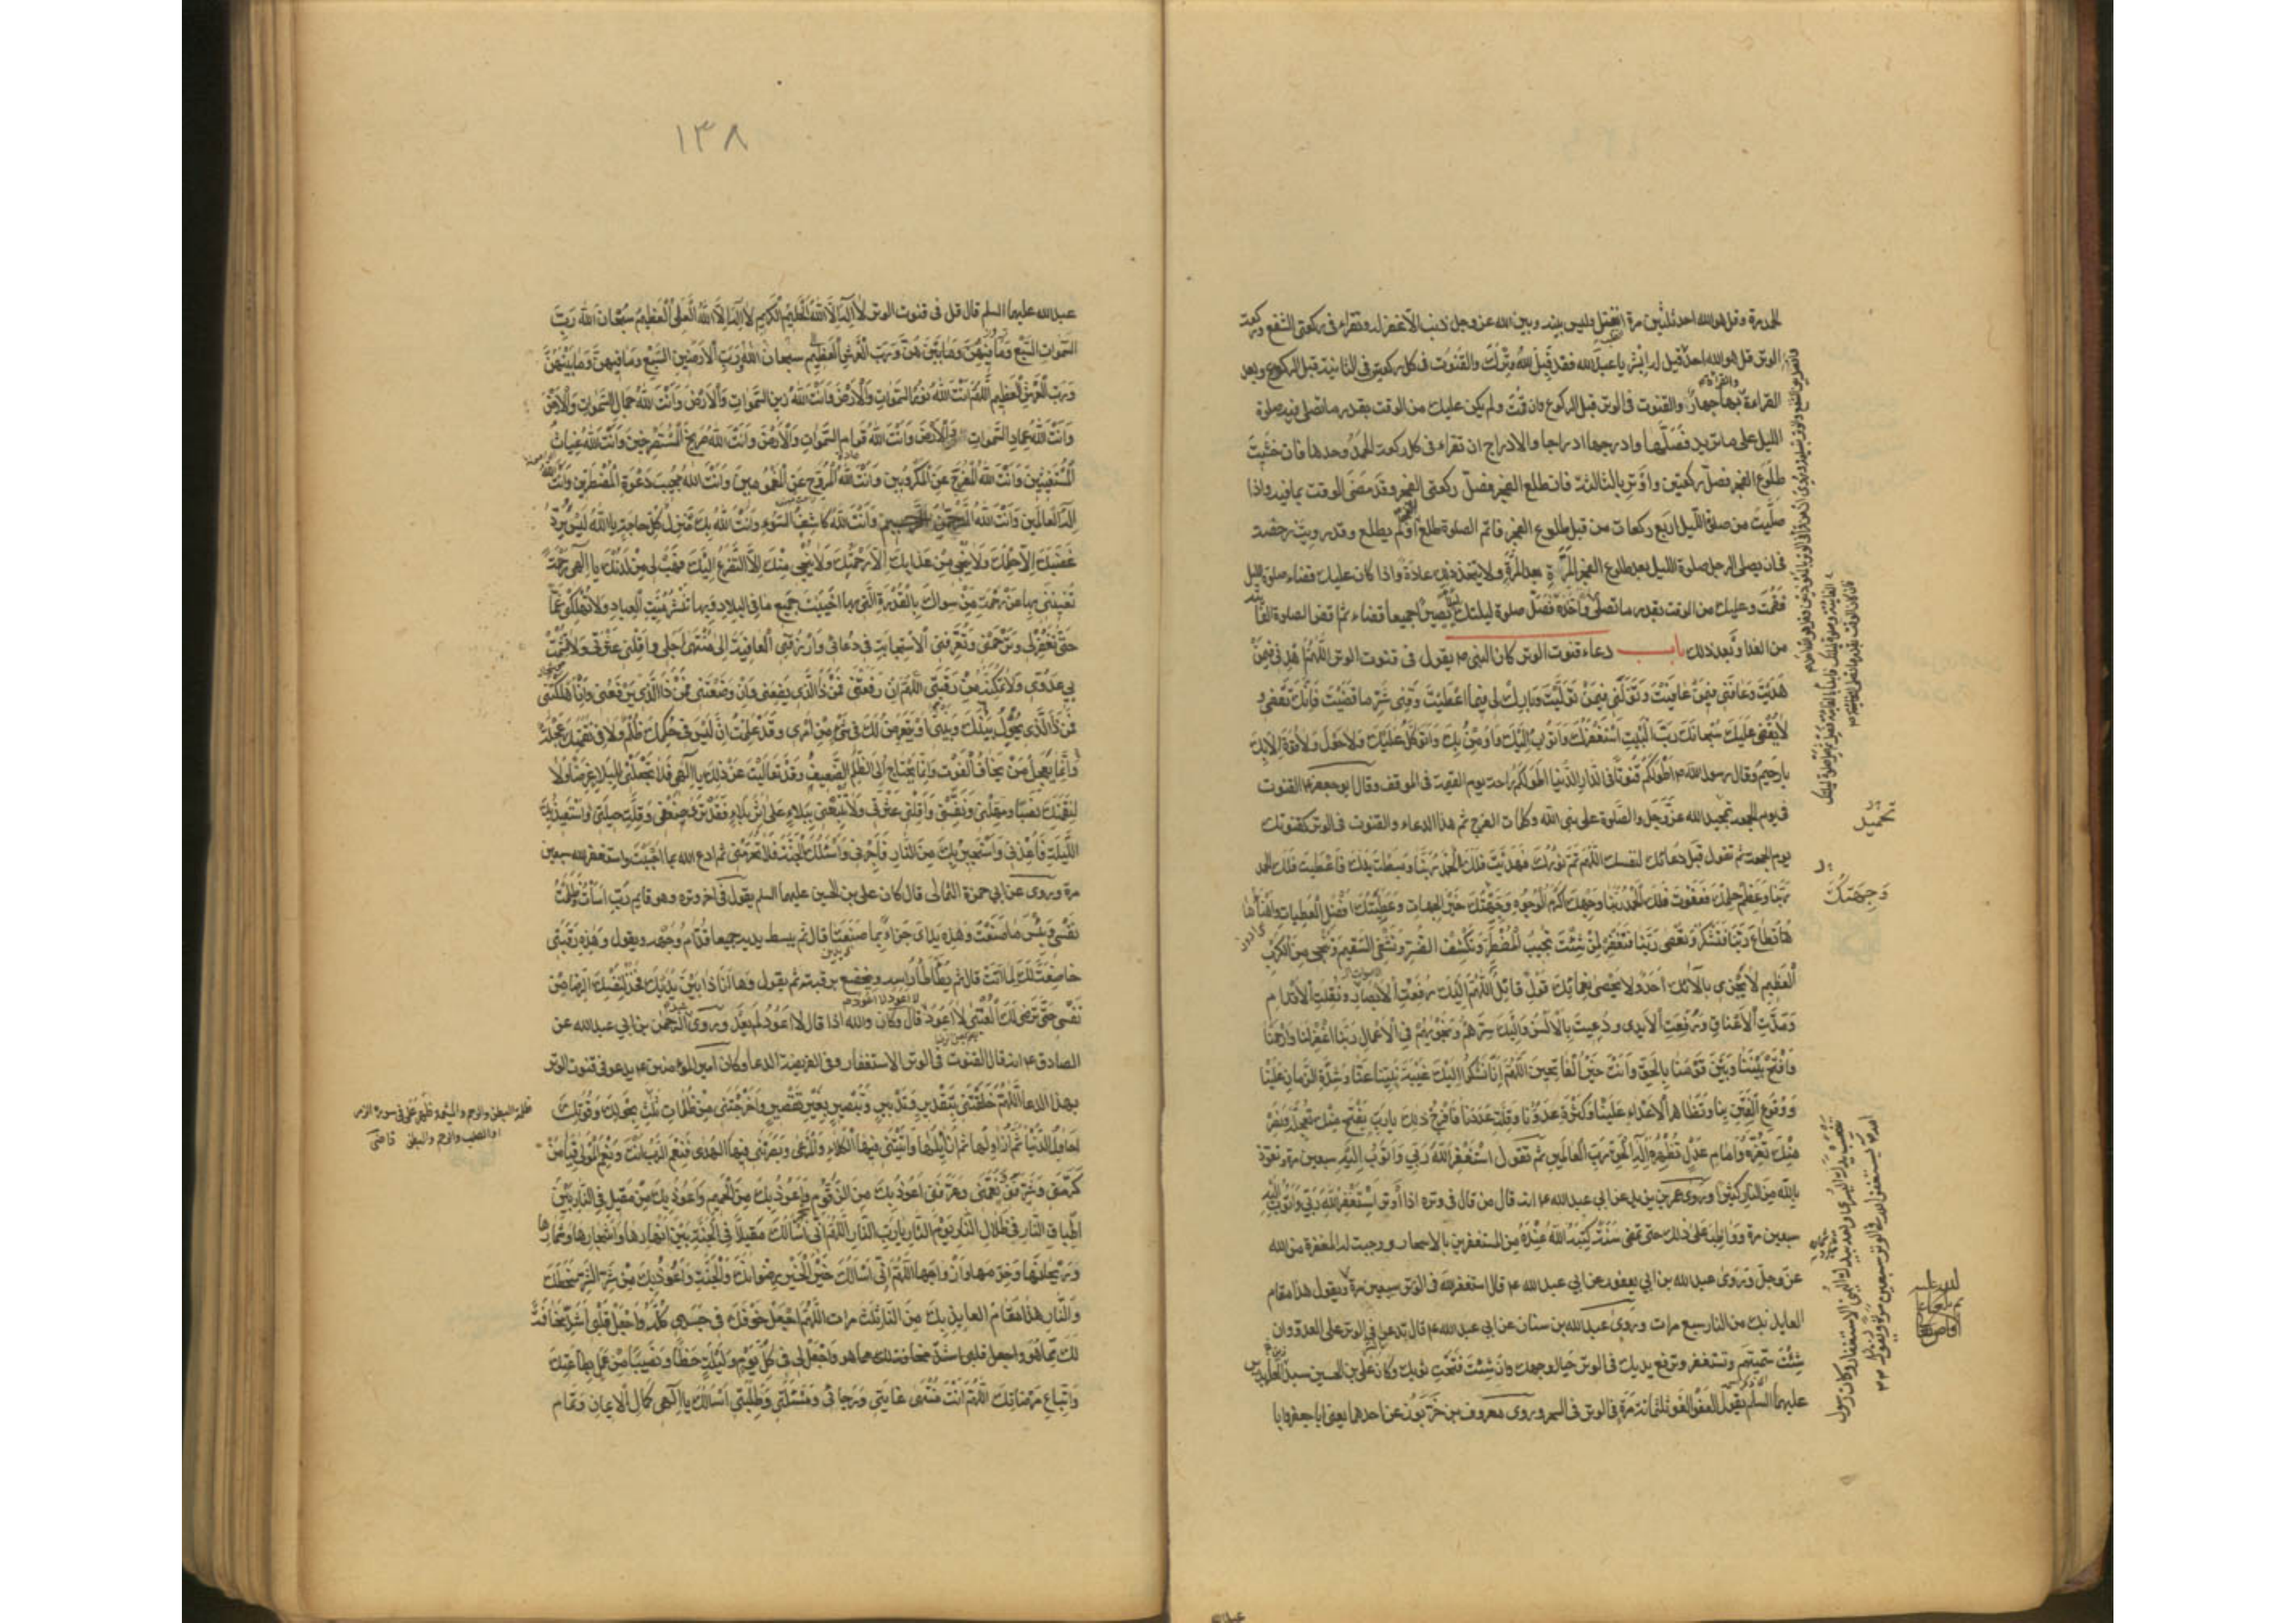 الحمد مرة وقل هو الله احد ثلثين مرة انفتل وليس بينه وبين الله عز وجل ذنب الا غفر له وتقراء فى ركعتى الشفع وركعة
الوتر قل هو الله احد قيل له ايش يا عبد الله فقد قبل الله وترك والقنوت فى كل ركعتين فى الثانية قبل الركوع وبعد
القراءة والقراءة بها جهارا والقنوت فى الوتر قبل الركوع وان قمت ولم يكن عليك من الوقت بقدر ما تصلى فيه صلوة
الليل على ما تريد فصلها وادرجها ادراجا والادراج ان تقراء فى كل ركعة الحمد وحدها فان خشيت
طلوع الفجر فصل ركعتين واوتر بالثالثة فان طلع الفجر فصل ركعتى الفجر وقد مضى الوقت بما فيه واذا
صليت من صلوة الليل اربع ركعات من قبل طلوع الفجر فاتم الصلوة طلع الفجر او لم يطلع وقد رويت رخصة
فى ان يصلى الرجل صلوة الليل بعد طلوع الفجر المرة بعد المرة ولا يتخذ ذلك عادة واذا كان عليك قضاء صلوة الليل
فقمت وعليك من الوقت بقدر ما تصلى
من الغد او بعد ذلك باب دعاء قنوت الوتر كان النبى ص يقول فى قنوت الوتر اللهم اهدنى فيمن
هديت وعافنى فيمن عافيت وتولنى فيمن توليت وبارك لى فيما اعطيت وقنى شر ما قضيت فانك تقضى و
لا يقضى عليك سبحانك رب البيت استغفرك واتوب اليك واومن بك واتوكل عليك ولا حول ولا قوة الا بك
يا رحيم وقال رسول الله ص اطولكم قنوتا فى الدار الدنيا اطولكم راحة يوم القيمة فى الموقف وقال ابو جعفر ع القنوت
فى يوم الجمعة تمجيد الله عز وجل والصلوة على نبى الله وكلمات الفرج ثم هذا الدعاء والقنوت فى الوتر كقنوتك
يوم الجمعة ثم تقول قبل دعائك لنفسك اللهم تم نورك فهديت فلك الحمد ربنا وبسطت يدك فاعطيت فلك الحمد
ربنا وعظم حلمك فعفوت فلك الحمد ربنا وجهك اكرم الوجوه وجهتك خير الجهات وعطيتك افضل العطيات واهنأها
تطاع ربنا فتشكر وتعصى ربنا فتغفر لمن شئت تجيب المضطر وتكشف الضر وتشفى السقيم وتنجى من الكرب
العظيم لا يجزى بالائك احد ولا يحصى نعمائك قول قائل اللهم اليك رفعت الابصار ونقلت الاقدام
ومدت الاعناق ورفعت الايدى ودعيت بالالسن واليك سرهم ونجويهم فى الاعمال ربنا اغفر لنا وارحمنا
وافتح بيننا وبين قومنا بالحق وانت خير الفاتحين اللهم انا نشكوا اليك غيبة نبينا عنا وشدة الزمان علينا
ووقوع الفتن بنا وتظاهر الاعداء علينا وكثرة عدونا وقلة عددنا فافرج ذلك يا رب بفتح منك تعجله ونصر
منك تعزه وامام عدل تظهره اله الحق رب العالمين ثم تقول استغفر الله ربى واتوب اليه سبعين مرة وتعوذ
بالله من النار كثيرا وروى عمر بن يزيد عن ابى عبد الله ع انه قال من قال فى وتره اذا اوتر استغفر الله ربى واتوب اليه
سبعين مرة وواظب على ذلك حتى تمضى سنة كتبه الله عنده من المستغفرين بالاسحار ووجبت له المغفرة من الله
عز وجل وروى عبد الله بن ابى يعفور عن ابى عبد الله ع قال استغفر الله فى الوتر سبعين مرة ويقول هذا مقام
العايذ بك من النار سبع مرات وروى عبد الله بن سنان عن ابى عبد الله ع قال تدعو فى الوتر على العدو وان
شئت سميتهم وتستغفر وترفع يديك فى الوتر حيال وجهك وان شئت فتحت ثوبك وكان على بن الحسين سيد العابدين
عليهما السلم يقول العفو العفو ثلثمائة مرة فى الوتر فى السحر وروى معروف بن خربوذ عن احدهما يعنى ابا جعفر وابا
تحميد
وجهتك
١٣٨
عبد الله عليهما السلم قال قل فى قنوت الوتر لا اله الا الله الحليم الكريم لا اله الا الله العلى العظيم سبحان الله رب
السموات السبع وما فيهن وما بينهن ورب العرش العظيم سبحان الله رب الارضين السبع وما فيهن وما بينهن
ورب العرش العظيم اللهم انت الله نور السموات والارض وانت الله زين السموات والارض وانت الله جمال السموات والارض
وانت الله عماد السموات والارض وانت الله قوام السموات والارض وانت الله صريخ المستصرخين وانت الله غياث
المستغيثين وانت الله المفرج عن المكروبين وانت الله المروح عن المغمومين وانت الله مجيب دعوة المضطرين وانت الله
اله العالمين وانت الله الرحمن الرحيم وانت الله كاشف السوء وانت الله بك تنزل كل حاجة يا الله ليس يرد
غضبك الا حلمك ولا ينجى من عذابك الا رحمتك ولا ينجى منك الا التضرع اليك فهب لى من لدنك يا الهى رحمة
تغنينى بها عن رحمة من سواك بالقدرة التى بها احييت جميع ما فى البلاد وبها تنشر ميت العباد ولا تهلكنى غما
حتى تغفر لى وترحمنى وتعرفنى الاستجابة فى دعائى وارزقنى العافية الى منتهى اجلى واقلنى عثرتى ولا تشمت
بى عدوى ولا تمكنه من رقبتى اللهم ان رفعتنى فمن ذا الذى يضعنى وان وضعتنى فمن ذا الذى يرفعنى وان اهلكتنى
فمن ذا الذى يحول بينك وبينى او يتعرض لك فى شىء من امرى وقد علمت ان ليس فى حكمك ظلم ولا فى نقمتك عجلة
وانما يعجل من يخاف الفوت وانما يحتاج الى الظلم الضعيف وقد تعاليت عن ذلك يا الهى فلا تجعلنى للبلاء غرضا ولا
لنقمتك نصبا ومهلنى ونفسنى واقلنى عثرتى ولا تتبعنى ببلاء على اثر بلاء فقد ترى ضعفى وقلة حيلتى استعيذ بك
الليلة فاعذنى واستجير بك من النار فاجرنى واسئلك الجنة فلا تحرمنى ثم ادع الله بما احببت واستغفر الله سبعين
مرة وروى عن ابى حمزة الثمالى قال كان على بن الحسين عليهما السلم يقول فى اخر وتره وهو قايم رب اسأت وظلمت
نفسى وبئس ما صنعت وهذه يداى جزاء بما صنعتا قال ثم يبسط يديه جميعا قدام وجهه ويقول وهذه رقبتى
خاضعة لك لما اتت قال ثم يطأطأ راسه ويخضع برقبته ثم يقول وها انا ذا بين يديك فخذ لنفسك الرضا من
نفسى حتى ترضى لك العتبى لا اعود لا اعود لا اعود قال وكان والله اذا قال لا اعود لم يعد وروى عبد الرحمن بن ابى عبد الله عن
الصادق ع انه قال القنوت فى الوتر الاستغفار وفى الفريضة الدعا وكان امير المؤمنين ع يدعو فى قنوت الوتر
بهذا الدعا اللهم خلقتنى بتقدير وتدبير وتبصير بغير تقصير واخرجتنى من ظلمات ثلث بحولك وقوتك
احاول الدنيا ثم ازاولها ثم ازايلها واتيتنى فيها الكلاء والمرعى وبصرتنى فيها الهدى فنعم الرب انت ونعم المولى فيا من
كرمنى وشرفنى ونعمنى وعرفنى اعوذ بك من الزقوم واعوذ بك من الحميم واعوذ بك من مقيل فى النار بين
اطباق النار فى ظلال النار يوم النار يا رب النار اللهم انى اسالك مقيلا فى الجنة بين انهارها واشجارها وثمارها
وريحانها وخدمها وازواجها اللهم انى اسالك خير الخير رضوانك والجنة واعوذ بك من شر الشر سخطك
والنار هذا مقام العايذ بك من النار ثلث مرات اللهم اجعل خوفك فى جسدى كله واجعل قلبى اشد مخافة
لك مما هو واجعل لى فى كل يوم وليلة حظا ونصيبا من عمل بطاعتك
واتباع مرضاتك اللهم انت منتهى غايتى ورجائى ومسئلتى وطلبتى اسالك يا الهى كمال الايمان وتمام